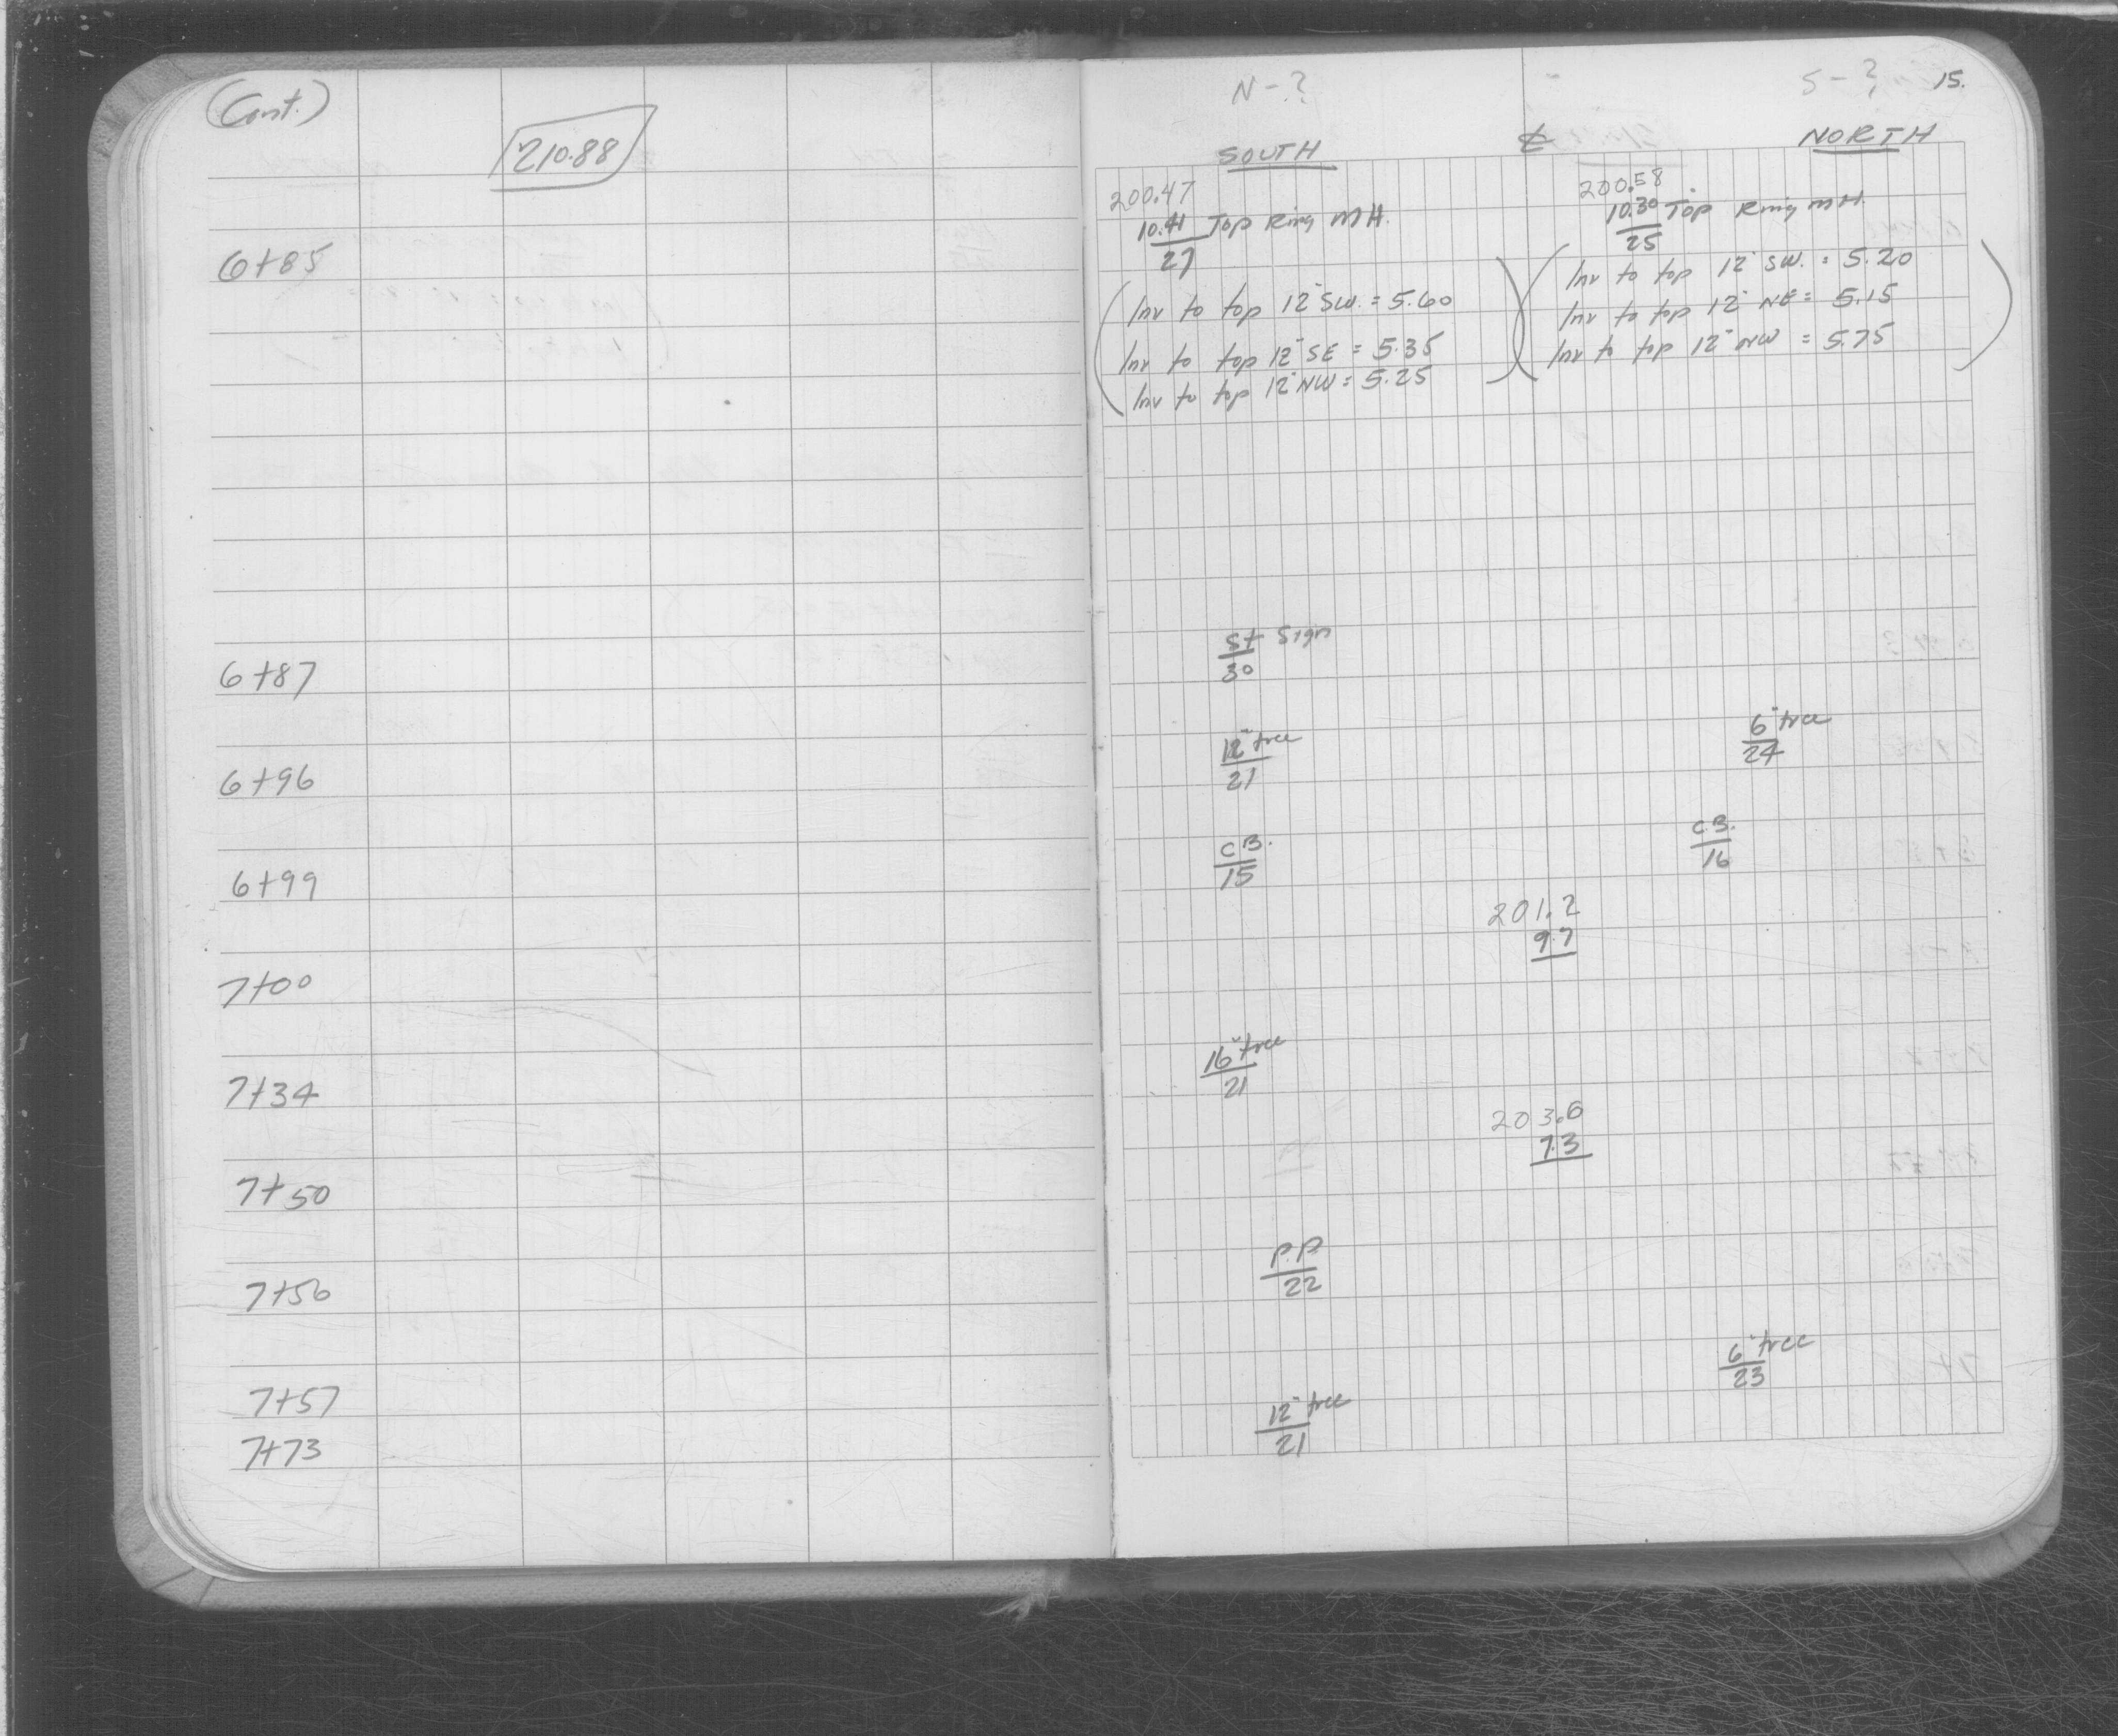 (Cont.)
210.88
6+85
6+87
6+96
6+99
7+00
7+34
7+50
7+56
7+57
7+73
N-?
S-?
15.
SOUTH
℄
NORTH
200.47
10.41 Top Ring M H.
27
200.58
10.30 Top Ring M H.
25
Inv to top 12" SW. = 5.60
Inv to top 12" SE = 5.35
Inv to top 12" NW = 5.25
Inv to top 12" SW. = 5.20
Inv to top 12" NE = 5.15
Inv to top 12" NW = 5.75
St Sign
30
12" tree
21
6" tree
24
C.B.
15
C.B.
16
201.2
9.7
16" tree
21
203.6
7.3
P.P.
22
6" tree
23
12" tree
21